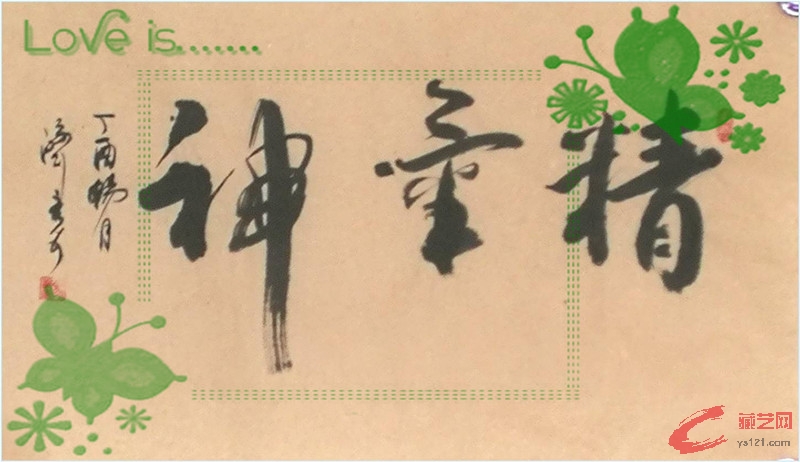 Love is.......
精氣神
丁酉暢月
藏艺网
ys121.com